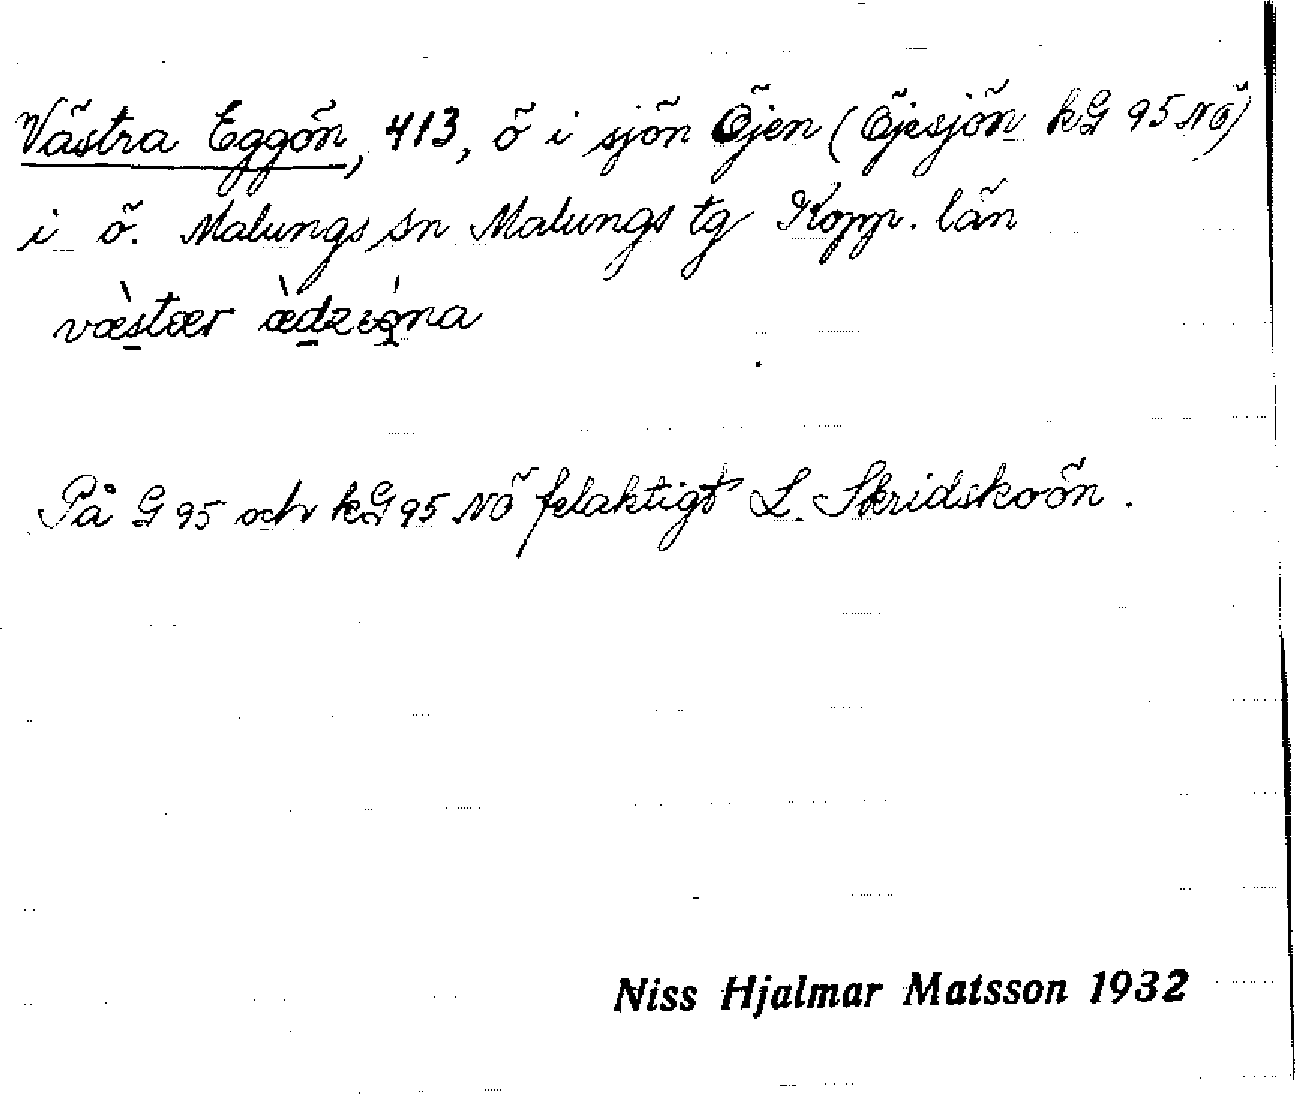 Västra Eggön, 413, ö i sjön Öjen (Öjesjön kG 95 NÖ)
i ö. Malungs sn Malungs tg Kopp. län
væ̀stær æ̀dzıö́na
På G 95 och kG 95 NÖ felaktigt L. Skridskoön.
Niss Hjalmar Matsson 1932